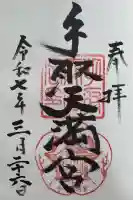 奉拝
手取天満宮
令和七年三月二十六日